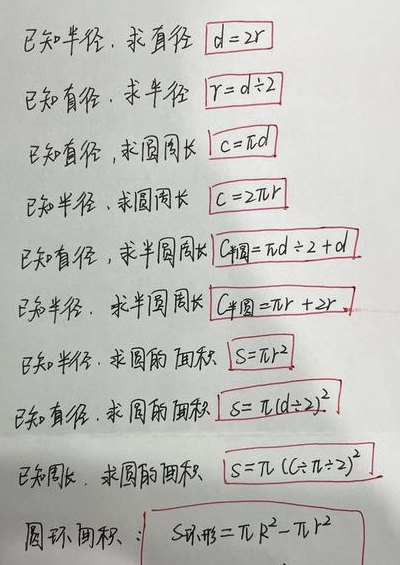 已知半径.求直径 d=2r
已知直径.求半径 r=d÷2
已知直径,求圆周长 C=πd
已知半径、求圆周长 C=2πr
已知直径,求半圆周长 C半圆=πd÷2+d
已知半径.求半圆周长 C半圆=πr+2r
已知半径.求圆的面积 S=πr²
已知直径.求圆的面积 S=π(d÷2)²
已知周长.求圆的面积 S=π(C÷π÷2)²
圆环面积: S环形=πR²-πr²